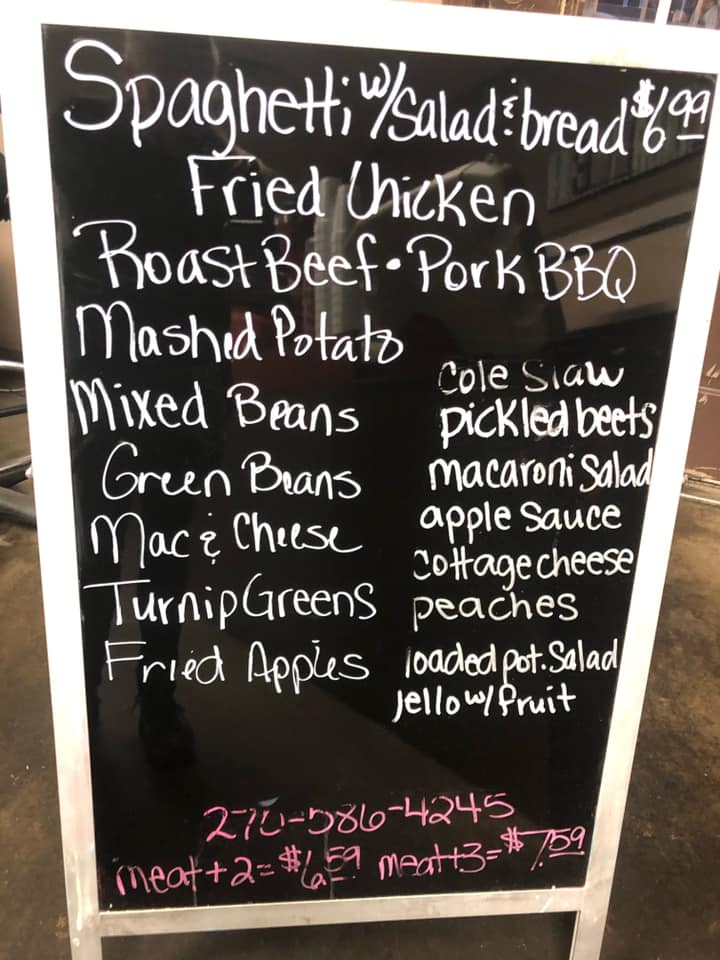 Spaghetti w/salad & bread $6.99
Fried Chicken
Roast Beef • Pork BBQ
Mashed Potato
Mixed Beans
Green Beans
Mac & Cheese
Turnip Greens
Fried Apples
Cole Slaw
pickled beets
macaroni Salad
apple Sauce
cottage cheese
peaches
loaded pot. Salad
Jello w/ fruit
270-586-4245
meat+2=$6.59 meat+3=$7.59